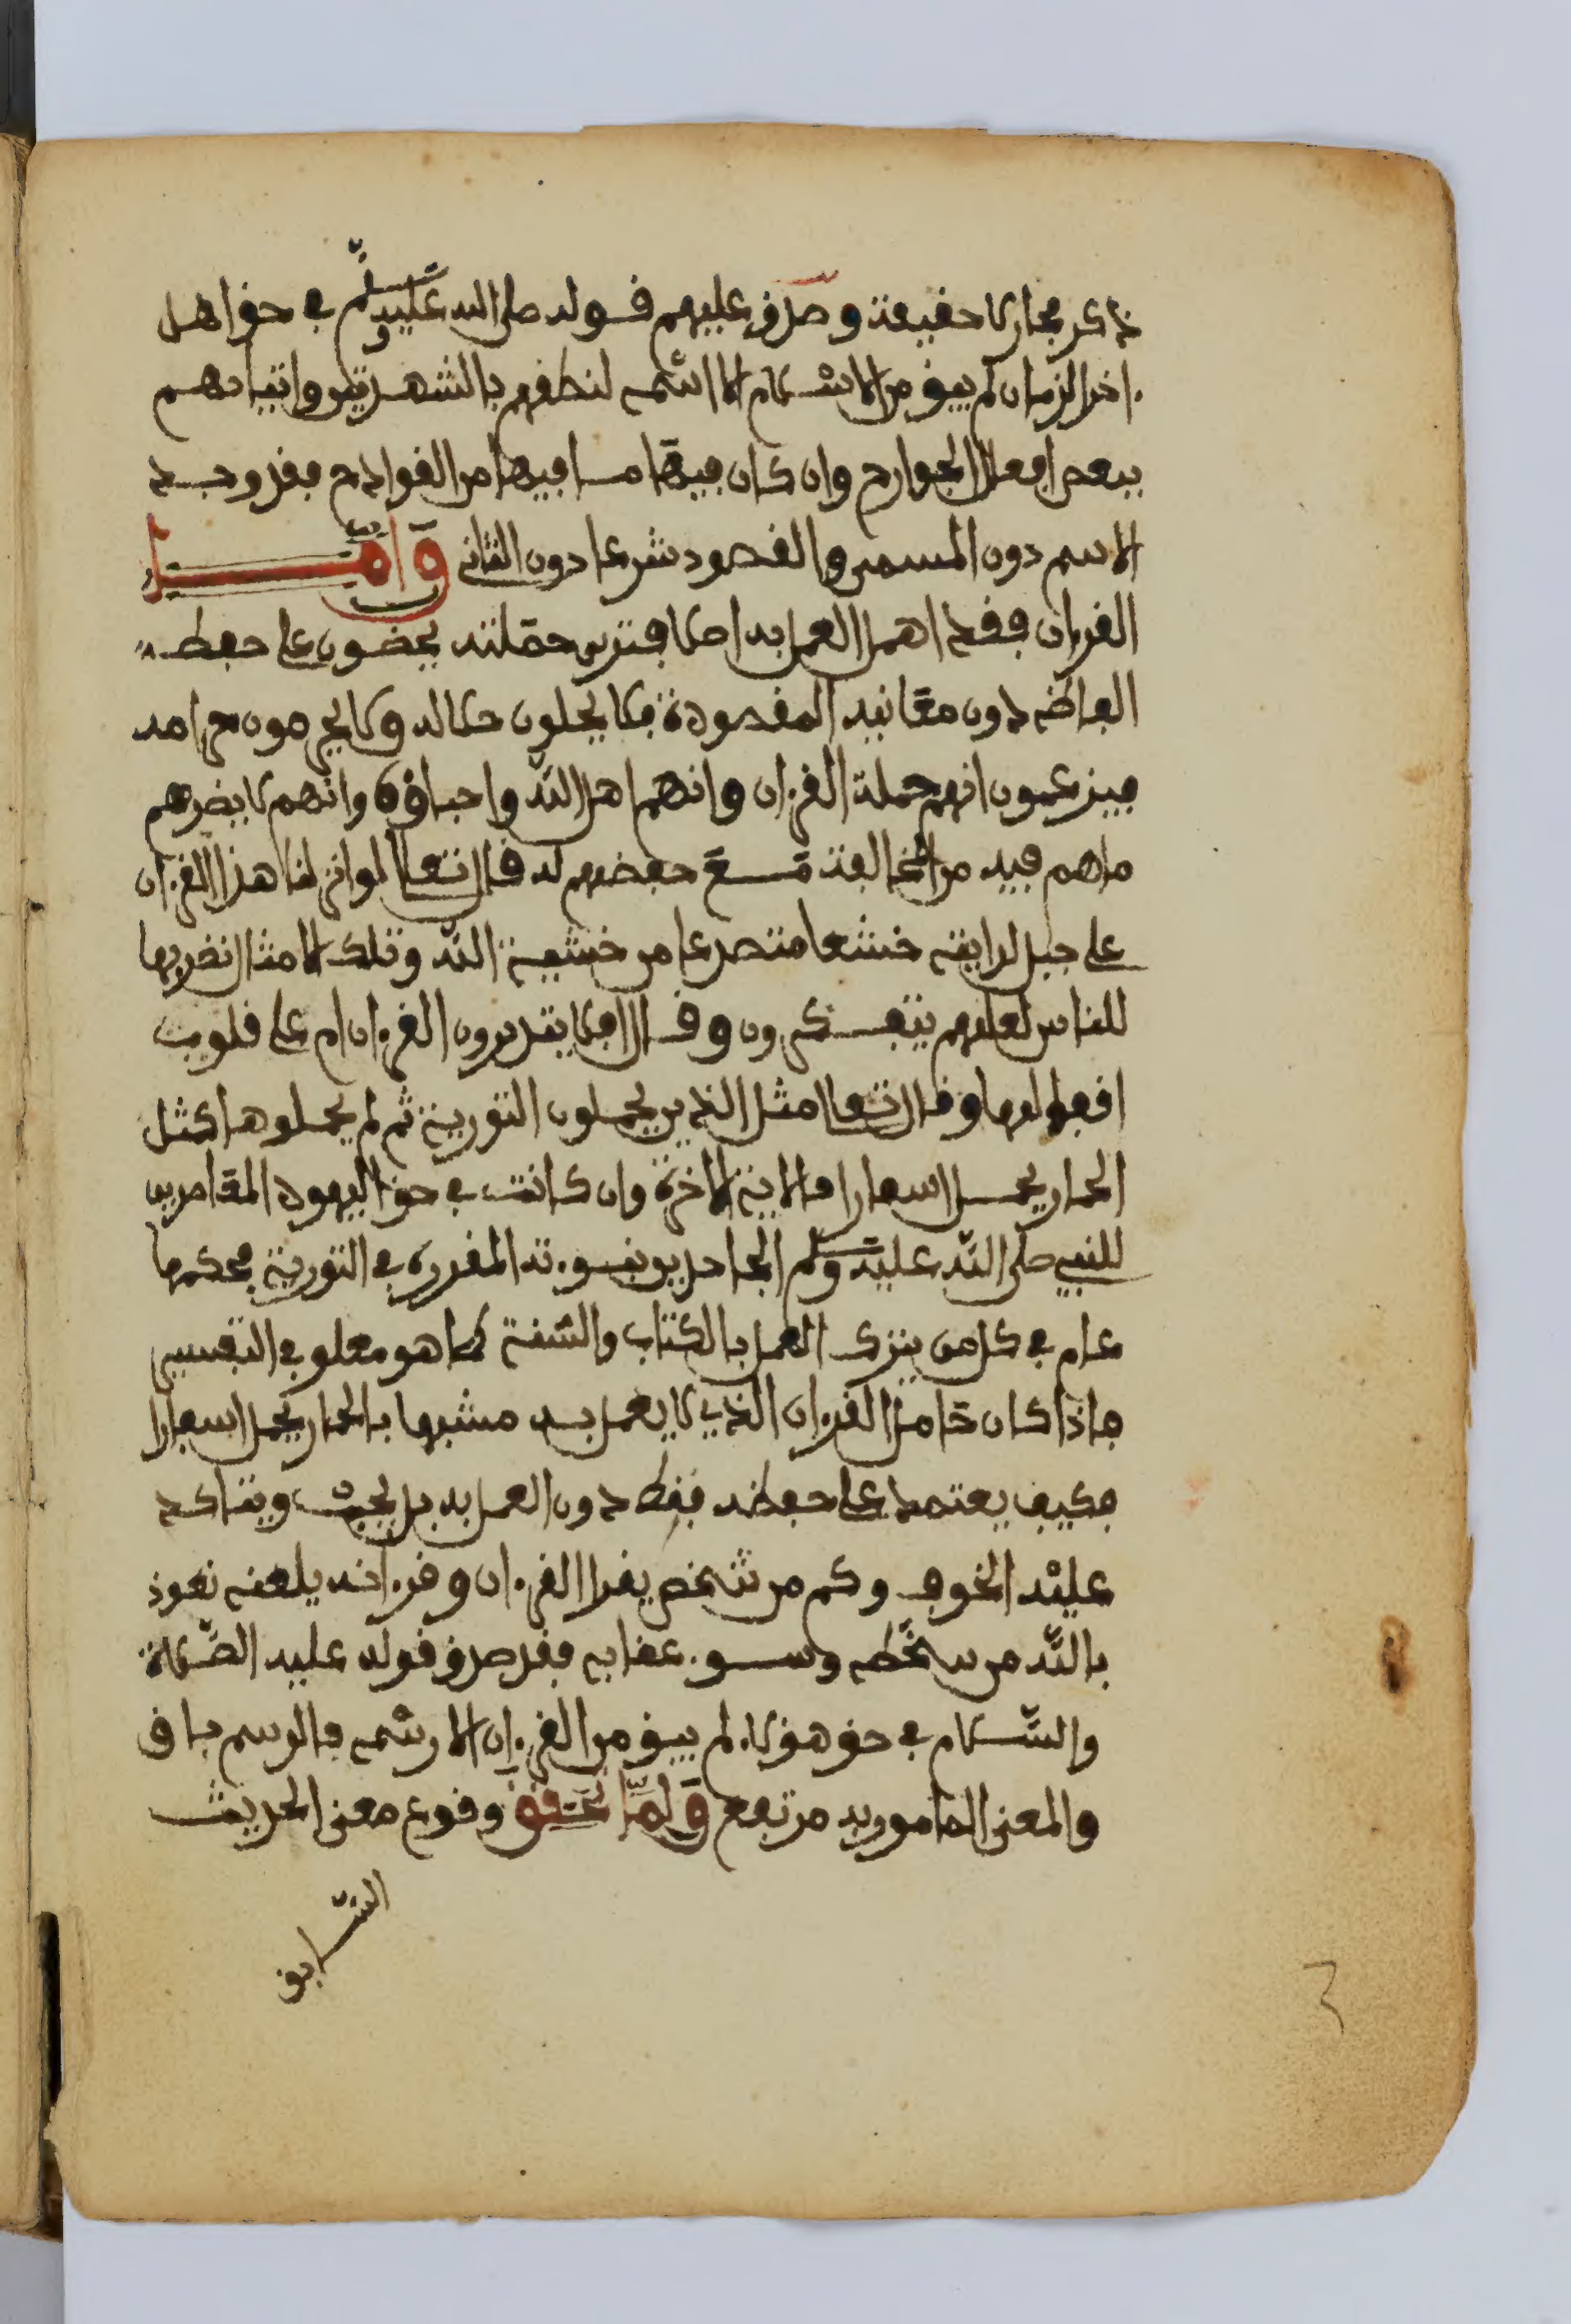 ذكر مجاز لا حقيقة وصدق عليهم قوله صلى الله عليه وسلم في حق اهل
ءاخر الزمان لم يبق من الاسلام الا اسمه لنطقهم بالشهدتين واتيانهم
ببعض افعال الجوارح وان كان فيها ما فيها من القوادح فقد وجد
الاسم دون المسمى والمقصود شرعا دون الثاني وامّا
القرءان فقد اهمل العمل به اصلا فترى حملته يحضون على حفظ
الفاظه دون معانيه المقصودة فلا يحلون حلاله ولا يحرمون حرامه
فيزعمون انهم حملة القرءان وانهم اهل الله واحباؤه وانهم لا يضرهم
ما هم فيه من المخالفة مع حفضهم له قال تعالى لو انزلنا هذا القرءان
على جبل لرايته خشعا متصدعا من خشية الله وتلك الامثال نضربها
للناس لعلهم يتفكرون وقال افلا يتدبرون القرءان ام على قلوب
اقفالها وقال تعالى مثل الذين يحملون التورية ثم لم يحملوها كمثل
الحمار يحمل اسفارا فالاية الاخرة وان كانت في حق اليهود المعاصرين
للنبي صلى الله عليه وسلم الجاحدين نبوءته المقررة في التورية فحكمها
عام في كل من يترك العمل بالكتاب والسنة كما هو معلو في التفسير
فاذا كان حامل القرءان الذي لا يعمل به مشبها بالحمار يحمل اسفارا
فكيف يعتمد على حفظه فقط دون العمل به بل يجب ويتاكد
عليه الخوف وكم من شخص يقرا القرءان وقرءانه يلعنه نعوذ
بالله من سخطه وسوء عقابه فقد صدق قوله عليه الصلاة
والسّلام في حق هؤلاء لم يبق من القرءان الا رسمه فالرسم باق
والمعنى المامور به مرتفع ولمّا تحقق وقوع معنى الحديث
السّابق
3